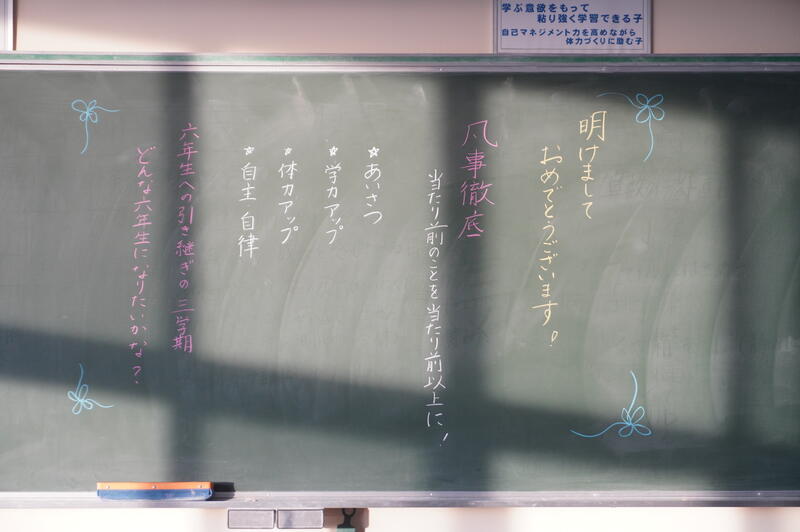 学ぶ意欲をもって
粘り強く学習できる子
自己マネジメント力を高めながら
体力づくりに励む子
明けまして
おめでとうございます!
凡事徹底
当たり前のことを当たり前以上に!
☆あいさつ
☆学力アップ
☆体力アップ
☆自主 自律
六年生への引き継ぎの三学期
どんな六年生になりたいかな?